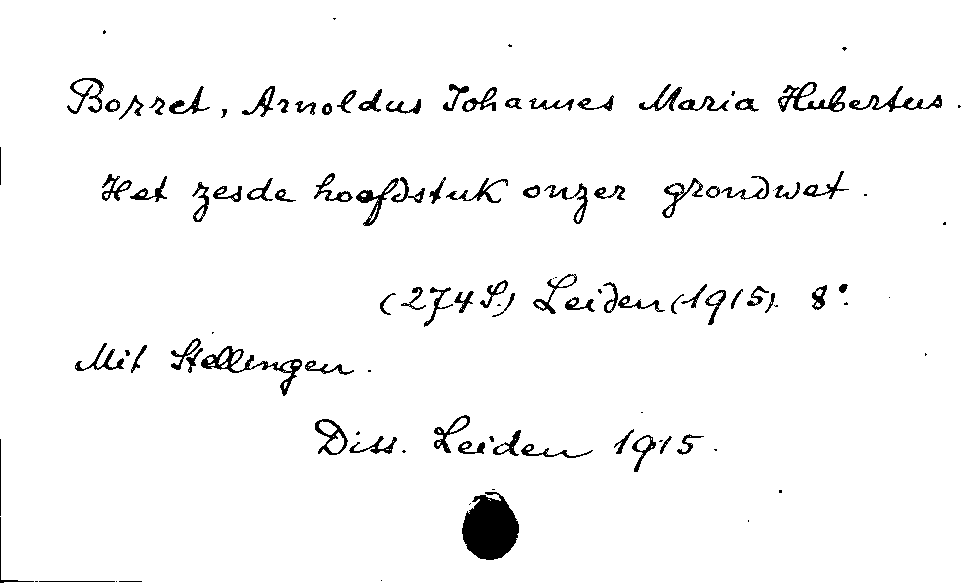 Borret, Arnoldus Johannes Maria Hubertus.
Het zesde hoofdstuk onzer grondwet.
(274 S.) Leiden (1915). 8°.
Mit Stellingen.
Diss. Leiden 1915.